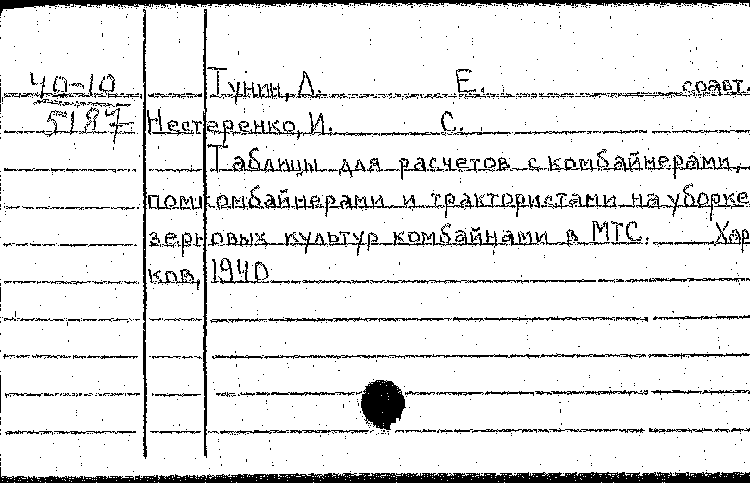 40-10 Тунин, Л. Е. соавт.
5187 Нестеренко, И. С.
Таблицы для расчетов с комбайнерами,
помкомбайнерами и трактористами на уборке
зерновых культур комбайнами в МТС. Хар
ков, 1940